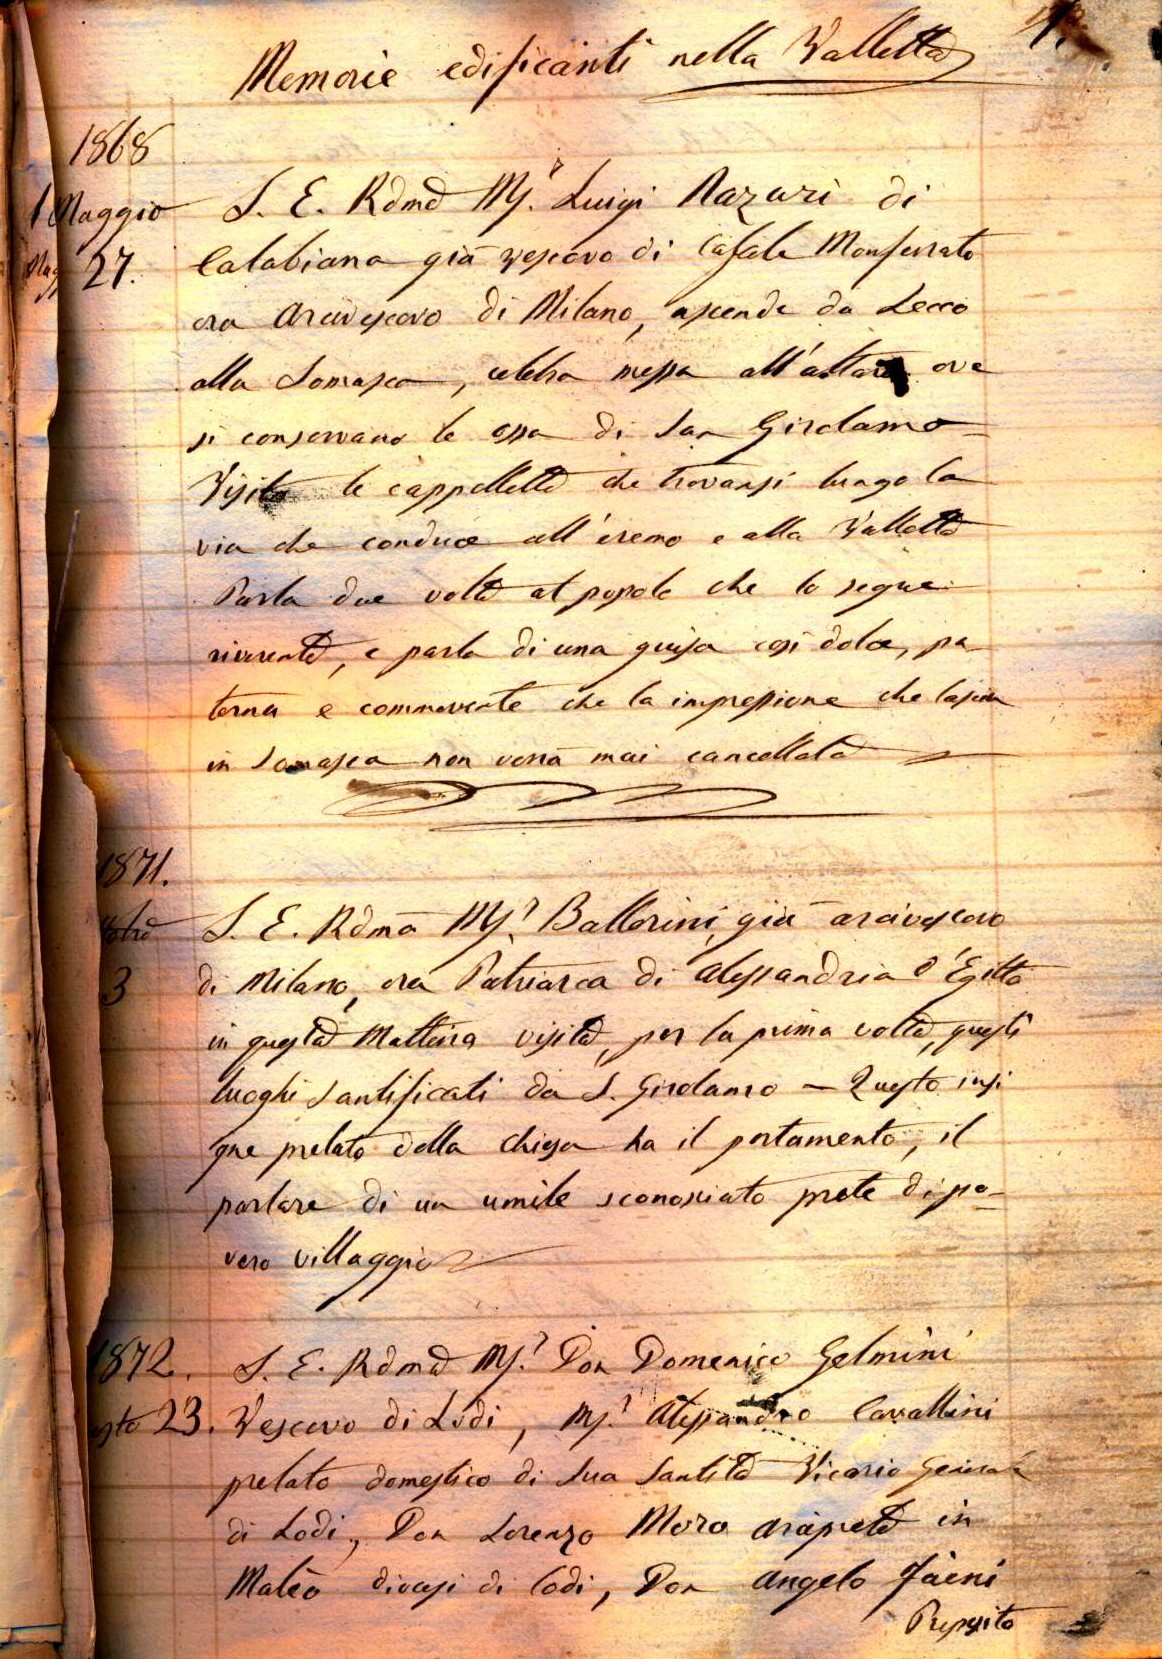 1.
Memorie edificanti nella Valletta
1868
1 Maggio
Mag 27.
S. E. Rdmo Mſ.r Luigi Nazari di
Calabiana già vescovo di Casale Monferrato
ora Arcivescovo di Milano, ascende da Lecco
alla Somasca, celebra messa all'altare ove
si conservano le ossa di San Girolamo =
Visita le cappellette che trovansi lungo la
via che conduce all'eremo e alla Valletta
Parla due volte al popolo che lo segue
riverente, e parla di una guisa così dolce, pa-
terna e commovente che la impressione che lascia
in Somasca non verrà mai cancellata
1871.
3
S. E. Rdmo Mſ.r Ballerini, già arcivescovo
di Milano, ora Patriarca di Alessandria d'Egitto
in questa Mattina visita, per la prima volta, questi
luoghi santificati da S. Girolamo — Questo insi
gne prelato della Chiesa ha il portamento, il
parlare di un umile sconosciuto prete di po-
vero villaggio
1872.
23.
S. E. Rdmo Mſ.r Don Domenico Gelmini
Vescovo di Lodi, Mſ.r Alessandro Cavallini
prelato domestico di Sua Santità Vicario General
di Lodi, Don Lorenzo Moro arciprete in
Maleo diocesi di Lodi, Don Angelo
Preposito